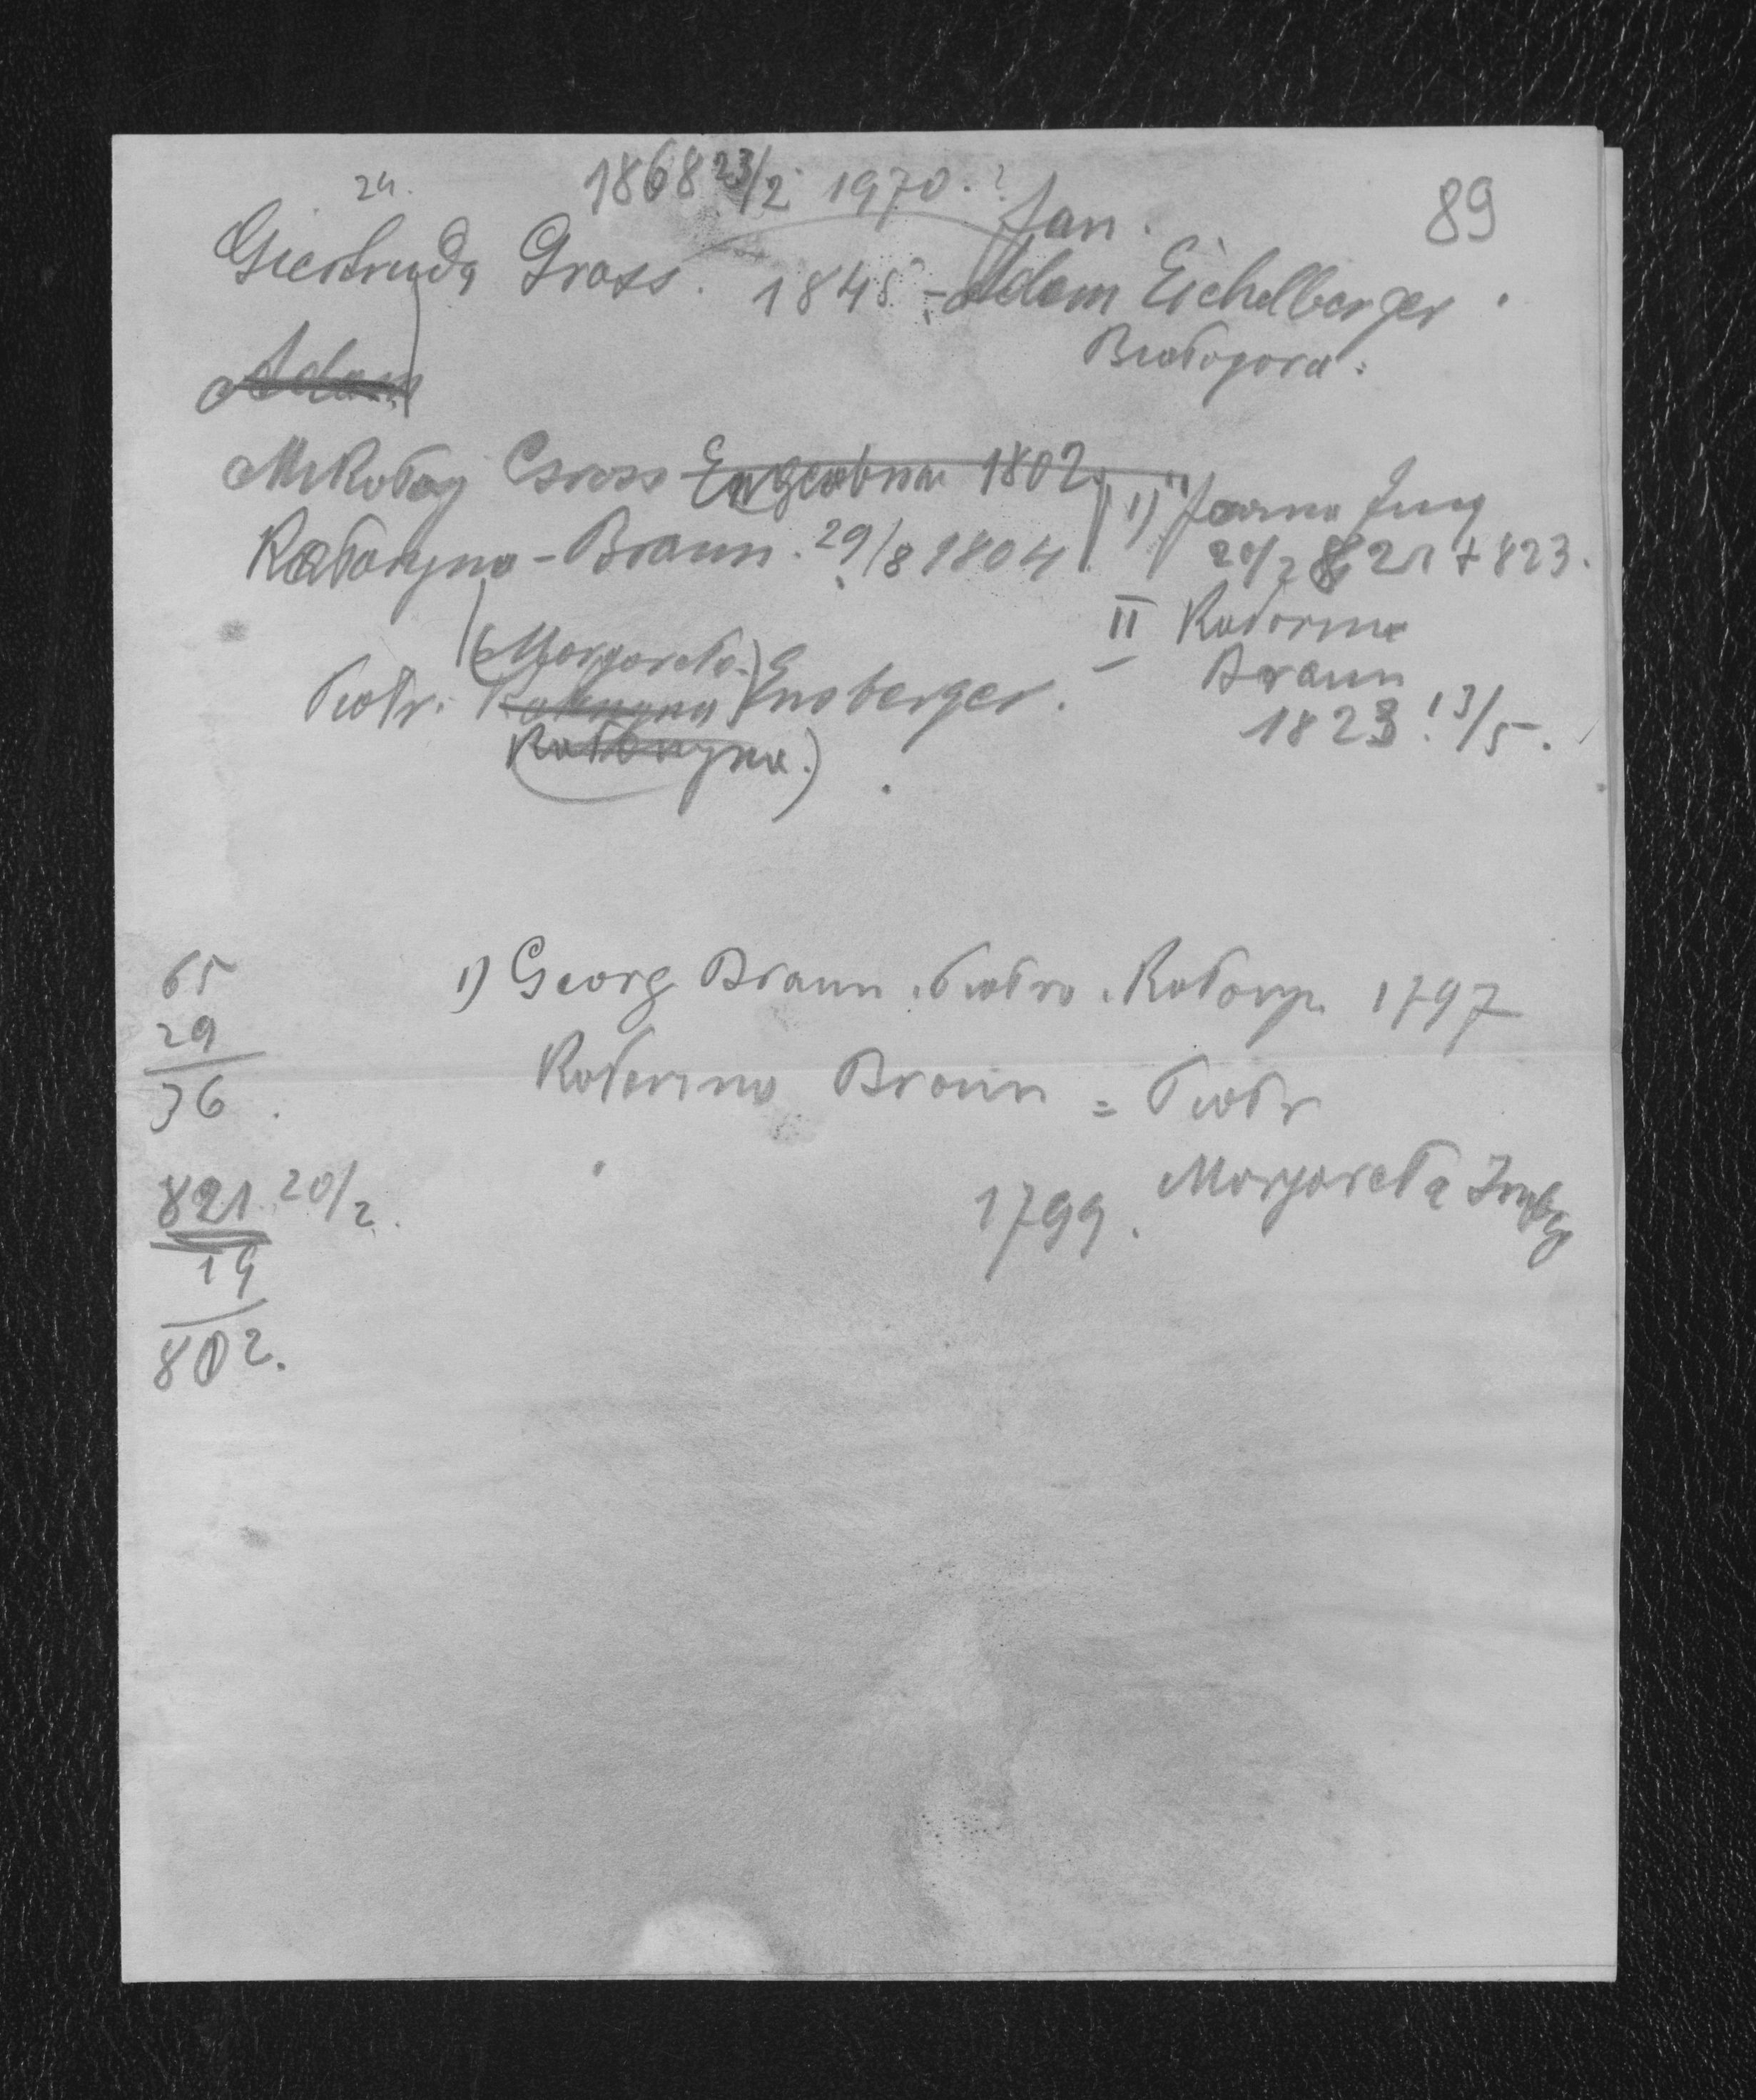 24. 1868 23/2 1970.? Jan.
89
Giertruda Gross. 1845 - Adam Eichelberger.
Białogora.
Adam
Mikołay Gross 1802
1) Jung
Katarzyna - Braun. 29/8 1804
20/2 821 + 823.
II Katarina
Braun
1823 13/5.
(Margareta.)
Piotr. Katarzyna Ensberger.
Katarzyna.)
65
29
36
1) Georg Braun. Piotra. Katarzy. 1797
Katerina Braun = Piotr
1799. Margareta
821 20/2.
19
802.